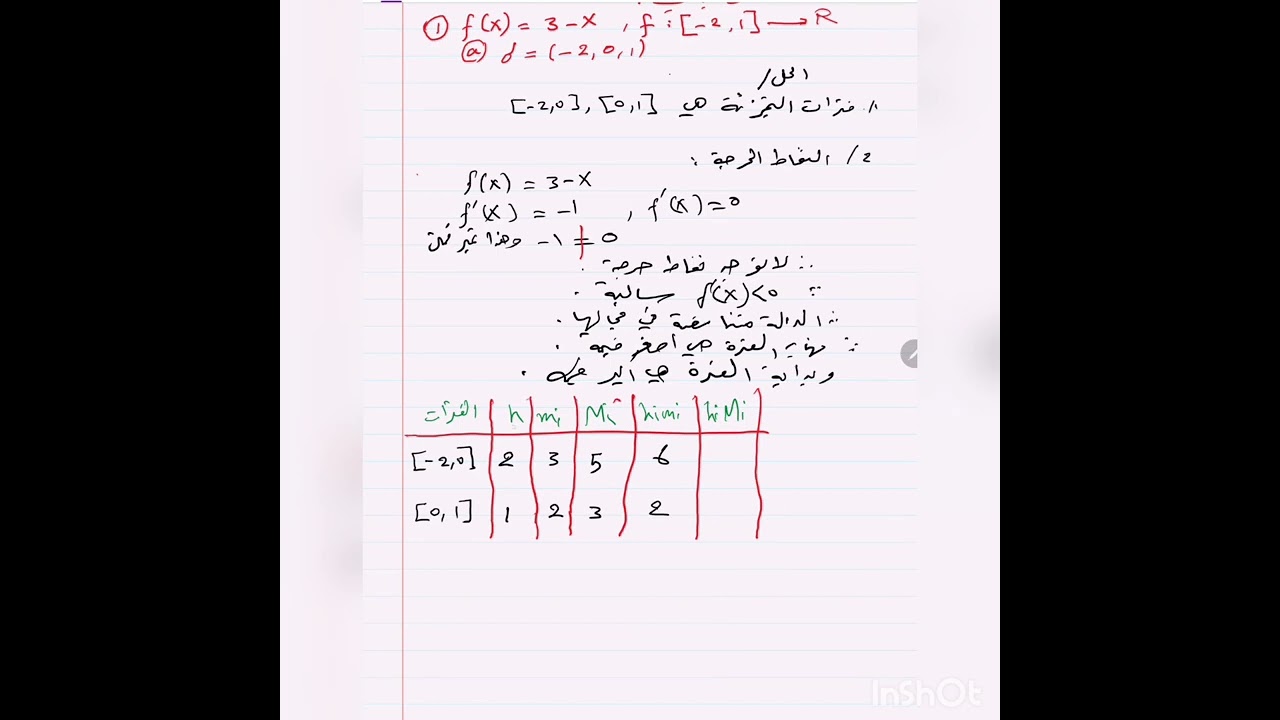 ① f(x) = 3-x , f : [-2,1] → R
ⓐ d = (-2,0,1)
الحل /
1/ فترات التجزئة هي [-2,0] , [0,1]
2/ النقاط الحرجة :
f(x) = 3-x
f'(x) = -1 , f'(x) = 0
-1 ≠ 0 وهذا غير
∴ لا توجد نقاط حرجة .
∵ f'(x)<0 سالبة .
∴ الدالة متناقصة في مجالها .
∴ نهاية الفترة هي أصغر قيمة .
وبداية الفترة هي أكبر قيمة .
الفترات | h | mi | Mi | himi | hiMi
[-2,0] | 2 | 3 | 5 | 6
[0,1] | 1 | 2 | 3 | 2
InShOt